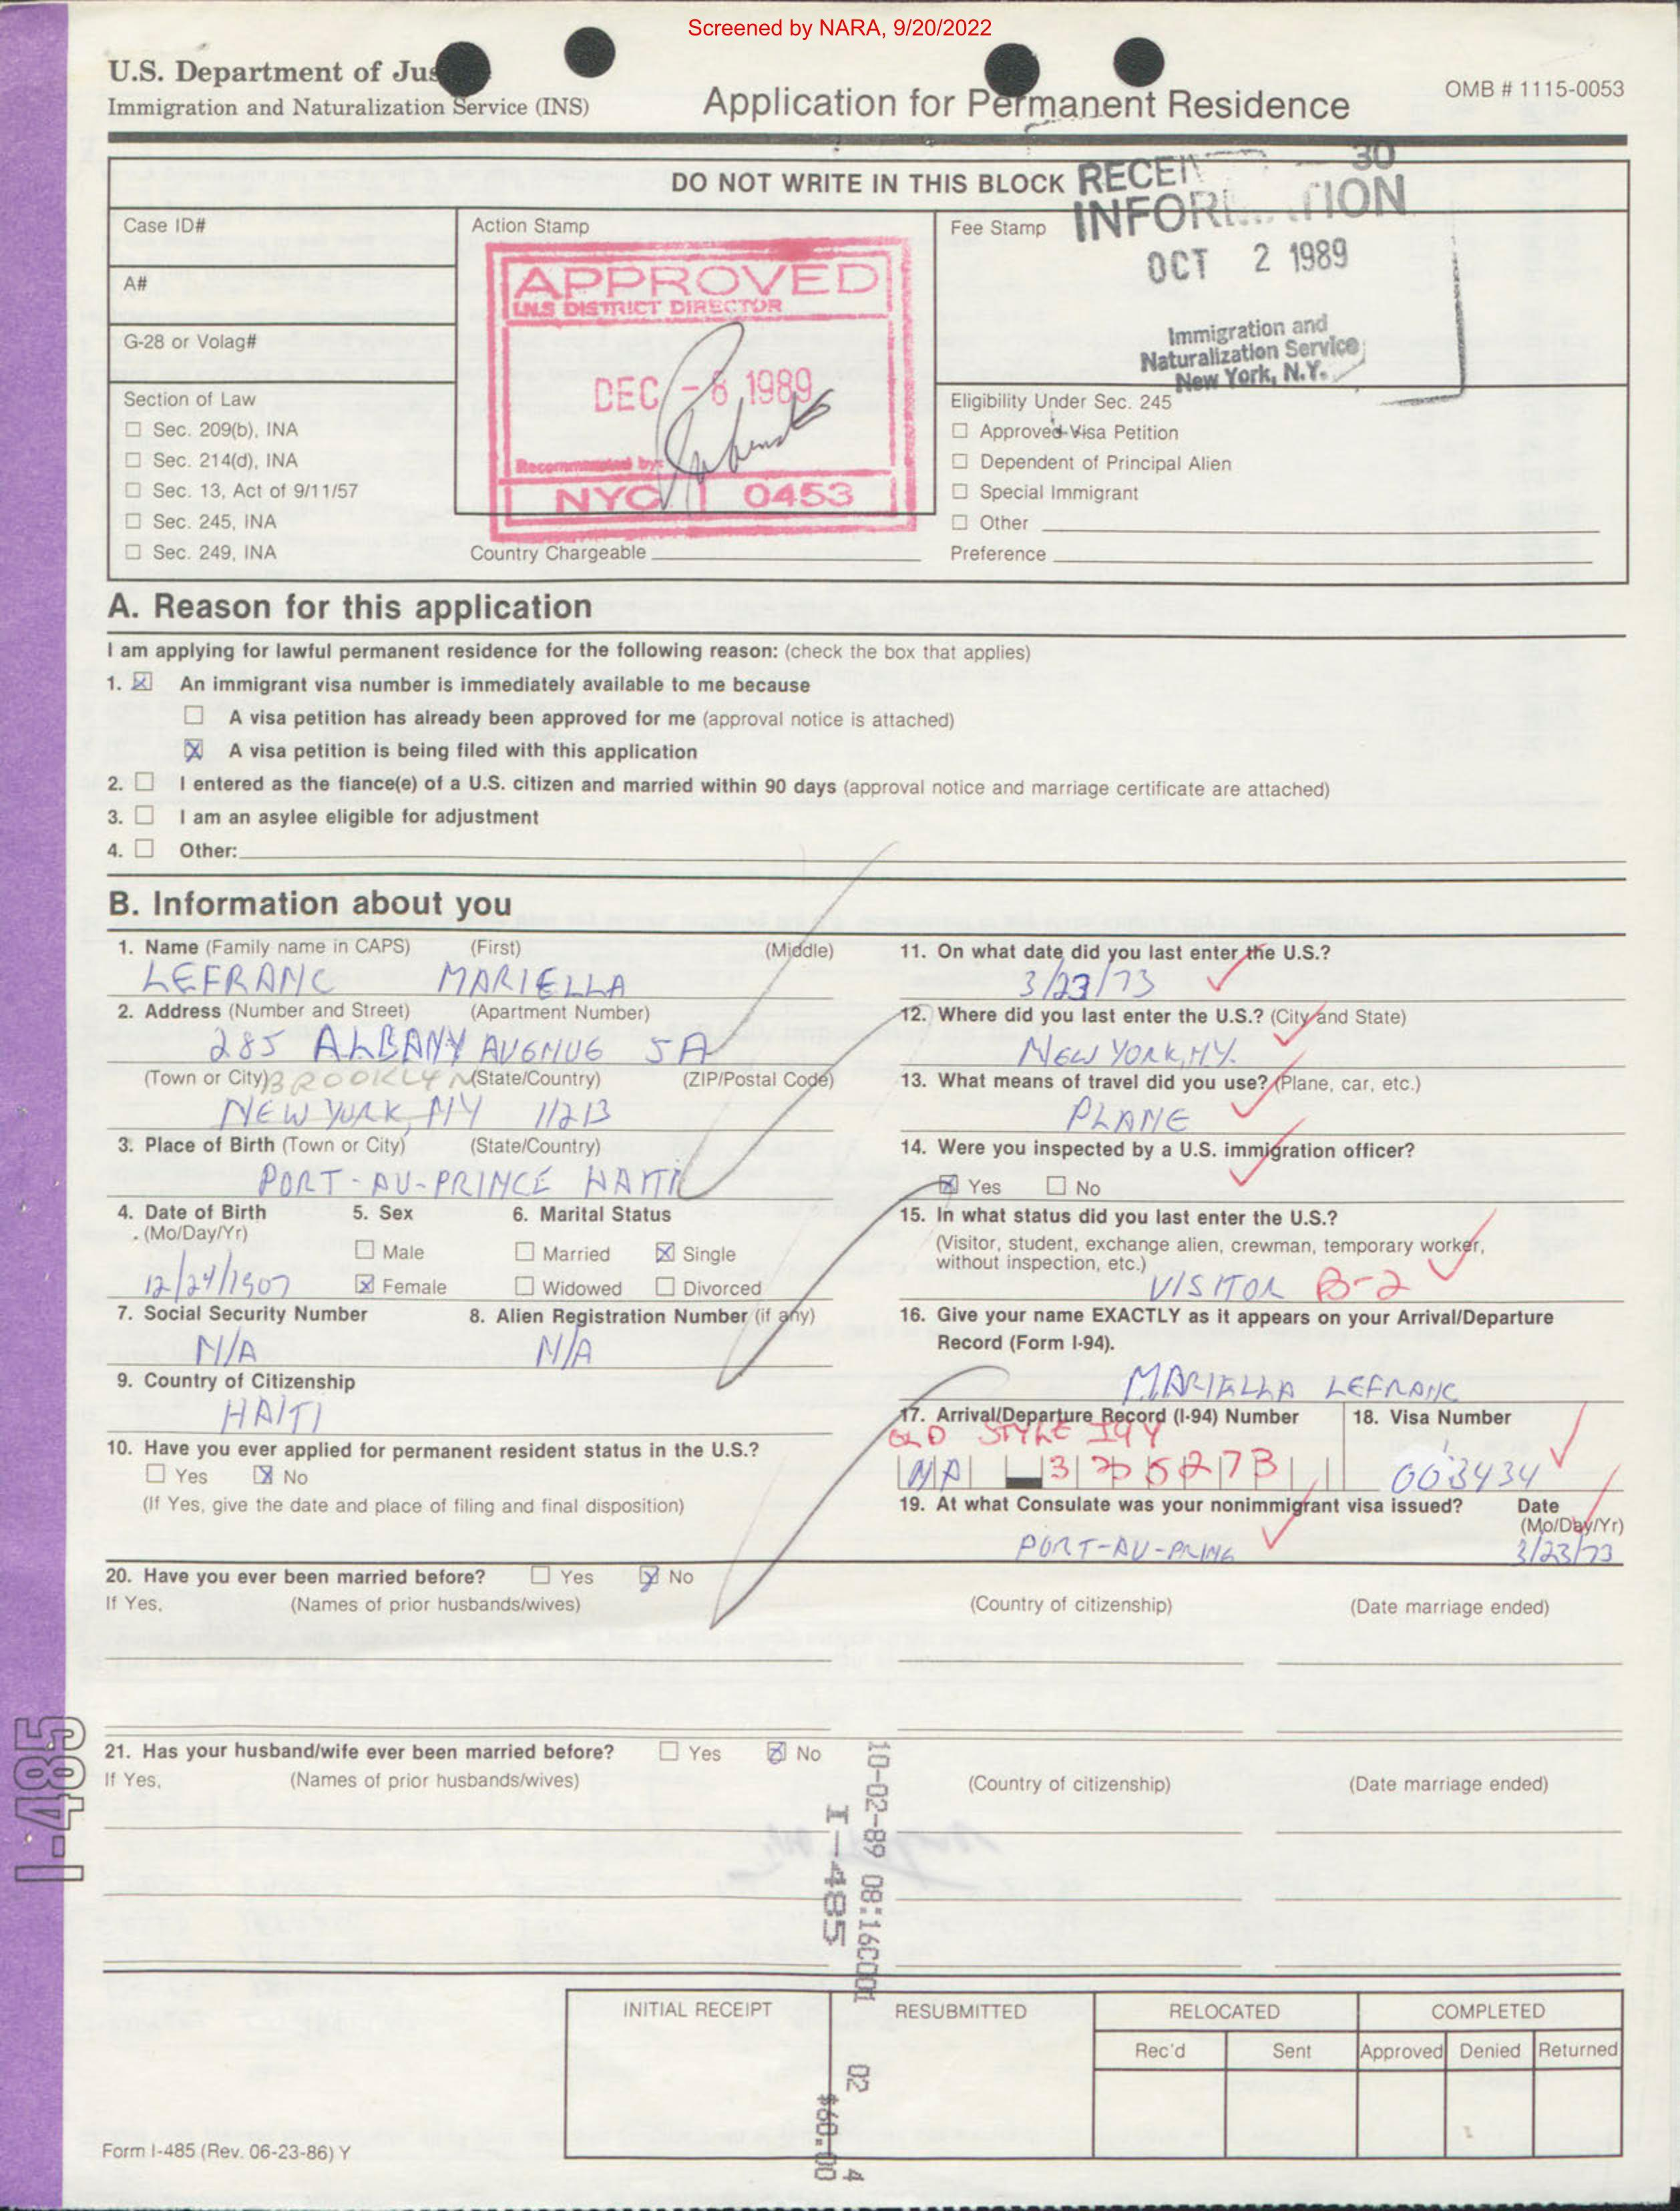 Screened by NARA, 9/20/2022
U.S. Department of Jus
Immigration and Naturalization Service (INS)
Application for Permanent Residence
OMB # 1115-0053
DO NOT WRITE IN THIS BLOCK
30
INFOR TION
OCT 2 1989
Immigration and
Naturalization Service
New York, N.Y.
Case ID#
A#
G-28 or Volag#
Section of Law
☐ Sec. 209(b), INA
☐ Sec. 214(d), INA
☐ Sec. 13, Act of 9/11/57
☐ Sec. 245, INA
☐ Sec. 249, INA
Action Stamp
APPROVED
I.N.S DISTRICT DIRECTOR
DEC - 8 1989
Recommended by:
NYC 0453
Country Chargeable
Fee Stamp
Eligibility Under Sec. 245
☐ Approved Visa Petition
☐ Dependent of Principal Alien
☐ Special Immigrant
☐ Other
Preference
A. Reason for this application
I am applying for lawful permanent residence for the following reason: (check the box that applies)
1. ☒ An immigrant visa number is immediately available to me because
☐ A visa petition has already been approved for me (approval notice is attached)
☒ A visa petition is being filed with this application
2. ☐ I entered as the fiance(e) of a U.S. citizen and married within 90 days (approval notice and marriage certificate are attached)
3. ☐ I am an asylee eligible for adjustment
4. ☐ Other:
B. Information about you
1. Name (Family name in CAPS) (First) (Middle)
LEFRANC MARIELLA
2. Address (Number and Street) (Apartment Number)
285 ALBANY AVENUE 5A
(Town or City) BROOKLYN (State/Country) (ZIP/Postal Code)
NEW YORK, NY 11213
3. Place of Birth (Town or City) (State/Country)
PORT-AU-PRINCE HAITI
4. Date of Birth
(Mo/Day/Yr)
12/24/1907
5. Sex
☐ Male
☒ Female
6. Marital Status
☐ Married ☒ Single
☐ Widowed ☐ Divorced
7. Social Security Number
N/A
8. Alien Registration Number (if any)
N/A
9. Country of Citizenship
HAITI
10. Have you ever applied for permanent resident status in the U.S.?
☐ Yes ☒ No
(If Yes, give the date and place of filing and final disposition)
11. On what date did you last enter the U.S.?
3/23/73
12. Where did you last enter the U.S.? (City and State)
NEW YORK, NY.
13. What means of travel did you use? (Plane, car, etc.)
PLANE
14. Were you inspected by a U.S. immigration officer?
☒ Yes ☐ No
15. In what status did you last enter the U.S.?
(Visitor, student, exchange alien, crewman, temporary worker,
without inspection, etc.)
VISITOR B-2
16. Give your name EXACTLY as it appears on your Arrival/Departure
Record (Form I-94).
MARIELLA LEFRANC
17. Arrival/Departure Record (I-94) Number
OLD STYLE I94
N/A
18. Visa Number
003434
19. At what Consulate was your nonimmigrant visa issued?
PORT-AU-PRINC
Date
(Mo/Day/Yr)
3/23/73
20. Have you ever been married before? ☐ Yes ☒ No
If Yes, (Names of prior husbands/wives) (Country of citizenship) (Date marriage ended)
21. Has your husband/wife ever been married before? ☐ Yes ☒ No
If Yes, (Names of prior husbands/wives) (Country of citizenship) (Date marriage ended)
I-485
10-02-89 08:16C001
I-485
02
$60.00
4
INITIAL RECEIPT
RESUBMITTED
RELOCATED
Rec'd Sent
COMPLETED
Approved Denied Returned
Form I-485 (Rev. 06-23-86) Y